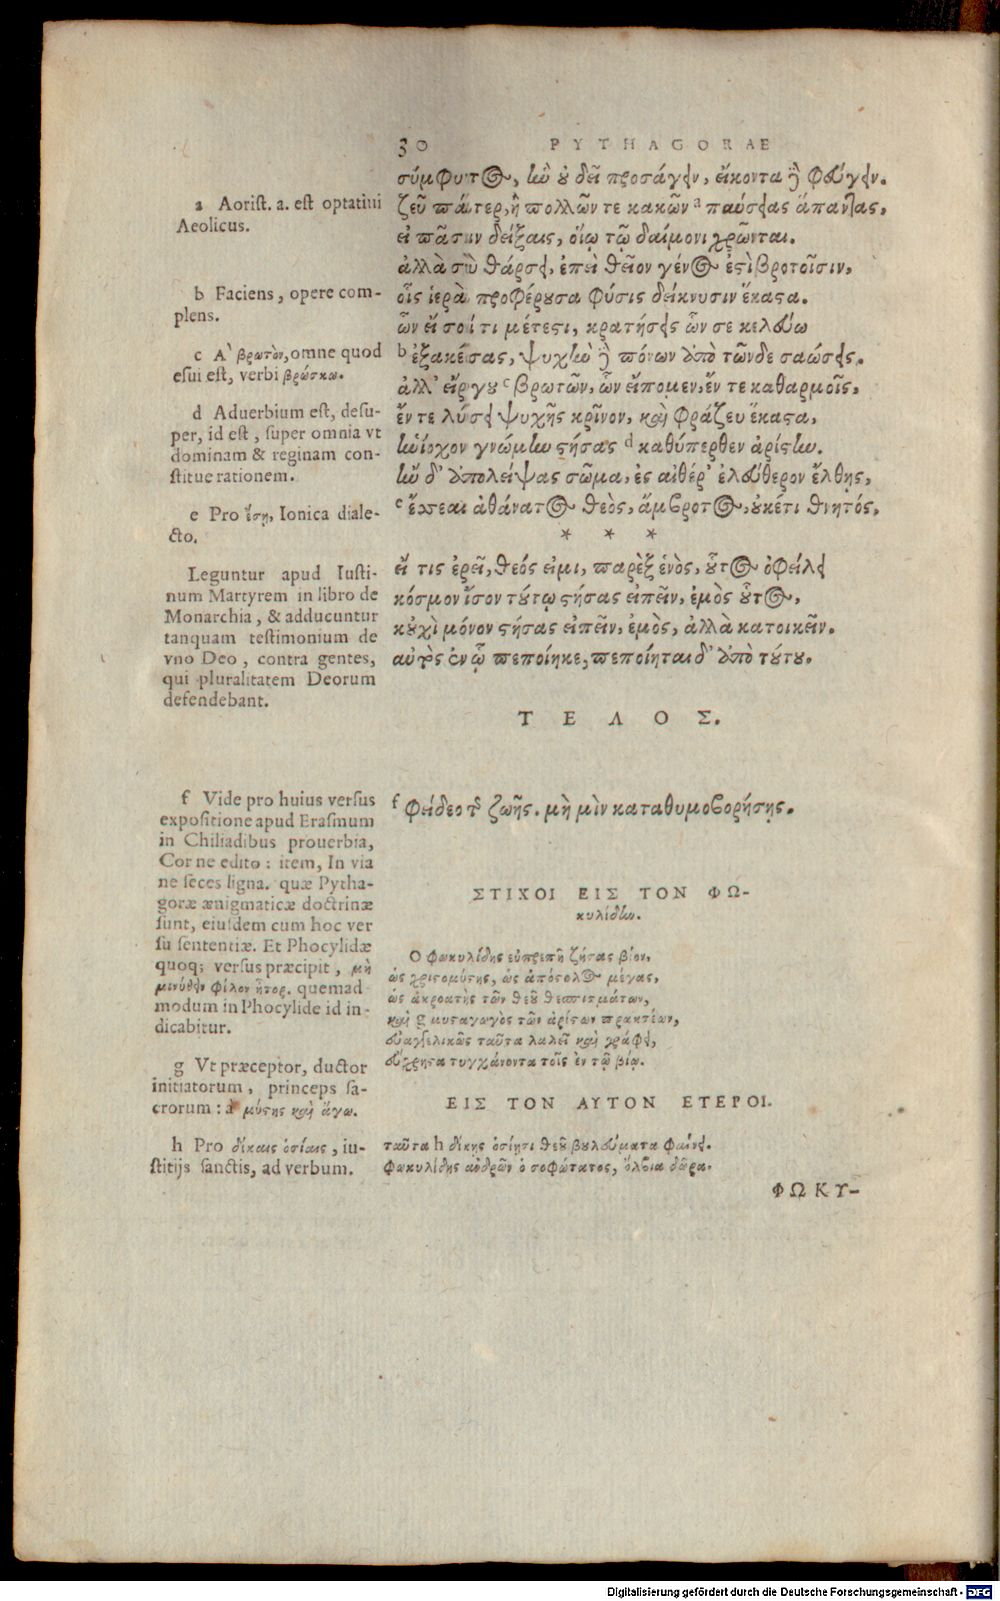 30 PYTHAGORAE
σύμφυτος, ἣν οὐ δεῖ προσάγειν, εἴκοντα δὲ φεύγειν.
ζεῦ πάτερ, ἦ πολλῶν τε κακῶν a παύσειας ἅπαντας,
εἰ πᾶσιν δείξαις, οἵῳ τῷ δαίμονι χρῶνται.
ἀλλὰ σὺ θάρσει, ἐπεὶ θεῖον γένος ἐστὶ βροτοῖσιν,
οἷς ἱερὰ προφέρουσα φύσις δείκνυσιν ἕκαστα.
ὧν εἴ σοί τι μέτεστι, κρατήσεις ὧν σε κελεύω
b ἐξακέσας, ψυχὴν δὲ πόνων ἀπὸ τῶνδε σαώσεις.
ἀλλ' εἴργου c βρωτῶν, ὧν εἴπομεν, ἔν τε καθαρμοῖς,
ἔν τε λύσει ψυχῆς κρῖνον, καὶ φράζευ ἕκαστα,
ἡνίοχον γνώμην στήσας d καθύπερθεν ἀρίστην.
ἢν δ' ἀπολείψας σῶμα, ἐς αἰθέρ' ἐλεύθερον ἔλθῃς,
e ἔσσεαι ἀθάνατος θεὸς, ἄμβροτος, οὐκέτι θνητός.
* * *
εἴ τις ἐρεῖ, θεός εἰμι, πάρεξ ἑνὸς, οὗτος ὀφείλει
κόσμον ἴσον τούτῳ στήσας εἰπεῖν, ἐμὸς οὗτος,
κοὐχὶ μόνον στήσας εἰπεῖν, ἐμὸς, ἀλλὰ κατοικεῖν.
αὐτὸς ἐν ᾧ πεποίηκε, πεποίηται δ' ὑπὸ τούτου.
ΤΕΛΟΣ.
a Aorist. a. est optatiui
Aeolicus.
b Faciens, opere com-
plens.
c Α' βρωτὸν, omne quod
esui est, verbi βρώσκω.
d Aduerbium est, desu-
per, id est, super omnia vt
dominam & reginam con-
stitue rationem.
e Pro ἔσῃ, Ionica diale-
cto.
Leguntur apud Iusti-
num Martyrem in libro de
Monarchia, & adducuntur
tanquam testimonium de
vno Deo, contra gentes,
qui pluralitatem Deorum
defendebant.
f Φείδεο τῆς ζωῆς. μὴ μὶν καταθυμοβορήσῃς.
f Vide pro huius versus
expositione apud Erasmum
in Chiliadibus prouerbia,
Cor ne edito: item, In via
ne seces ligna. quæ Pytha-
goræ ænigmaticæ doctrinæ
sunt, eiusdem cum hoc ver
su sententiæ. Et Phocylidæ
quoq; versus præcipit, μὴ
μινύθειν φίλον ἦτορ. quemad
modum in Phocylide id in-
dicabitur.
ΣΤΙΧΟΙ ΕΙΣ ΤΟΝ ΦΩ-
κυλίδην.
Ο φωκυλίδης εὐπρεπῆ ζήσας βίον,
ὡς χριστομύστης, ὡς ἀπόστολος μέγας,
ὡς ἀκροατὴς τῶν θεοῦ θεσπισμάτων,
καὶ g μυσταγωγὸς τῶν ἀρίστων πρακτέων,
εὐαγγελικῶς ταῦτα λαλεῖ καὶ γράφει,
εὔχρηστα τυγχάνοντα τοῖς ἐν τῷ βίῳ.
g Vt præceptor, ductor
initiatorum, princeps sa-
crorum: à μύστης καὶ ἄγω.
ΕΙΣ ΤΟΝ ΑΥΤΟΝ ΕΤΕΡΟΙ.
ταῦτα h δίκης ὁσίῃσι θεοῦ βουλεύματα φαίνει
φωκυλίδης ἀνδρῶν ὁ σοφώτατος, ὄλβια δῶρα.
h Pro δίκαις ὁσίαις, iu-
stitijs sanctis, ad verbum.
ΦΩΚΥ-
Digitalisierung gefördert durch die Deutsche Forschungsgemeinschaft - DFG